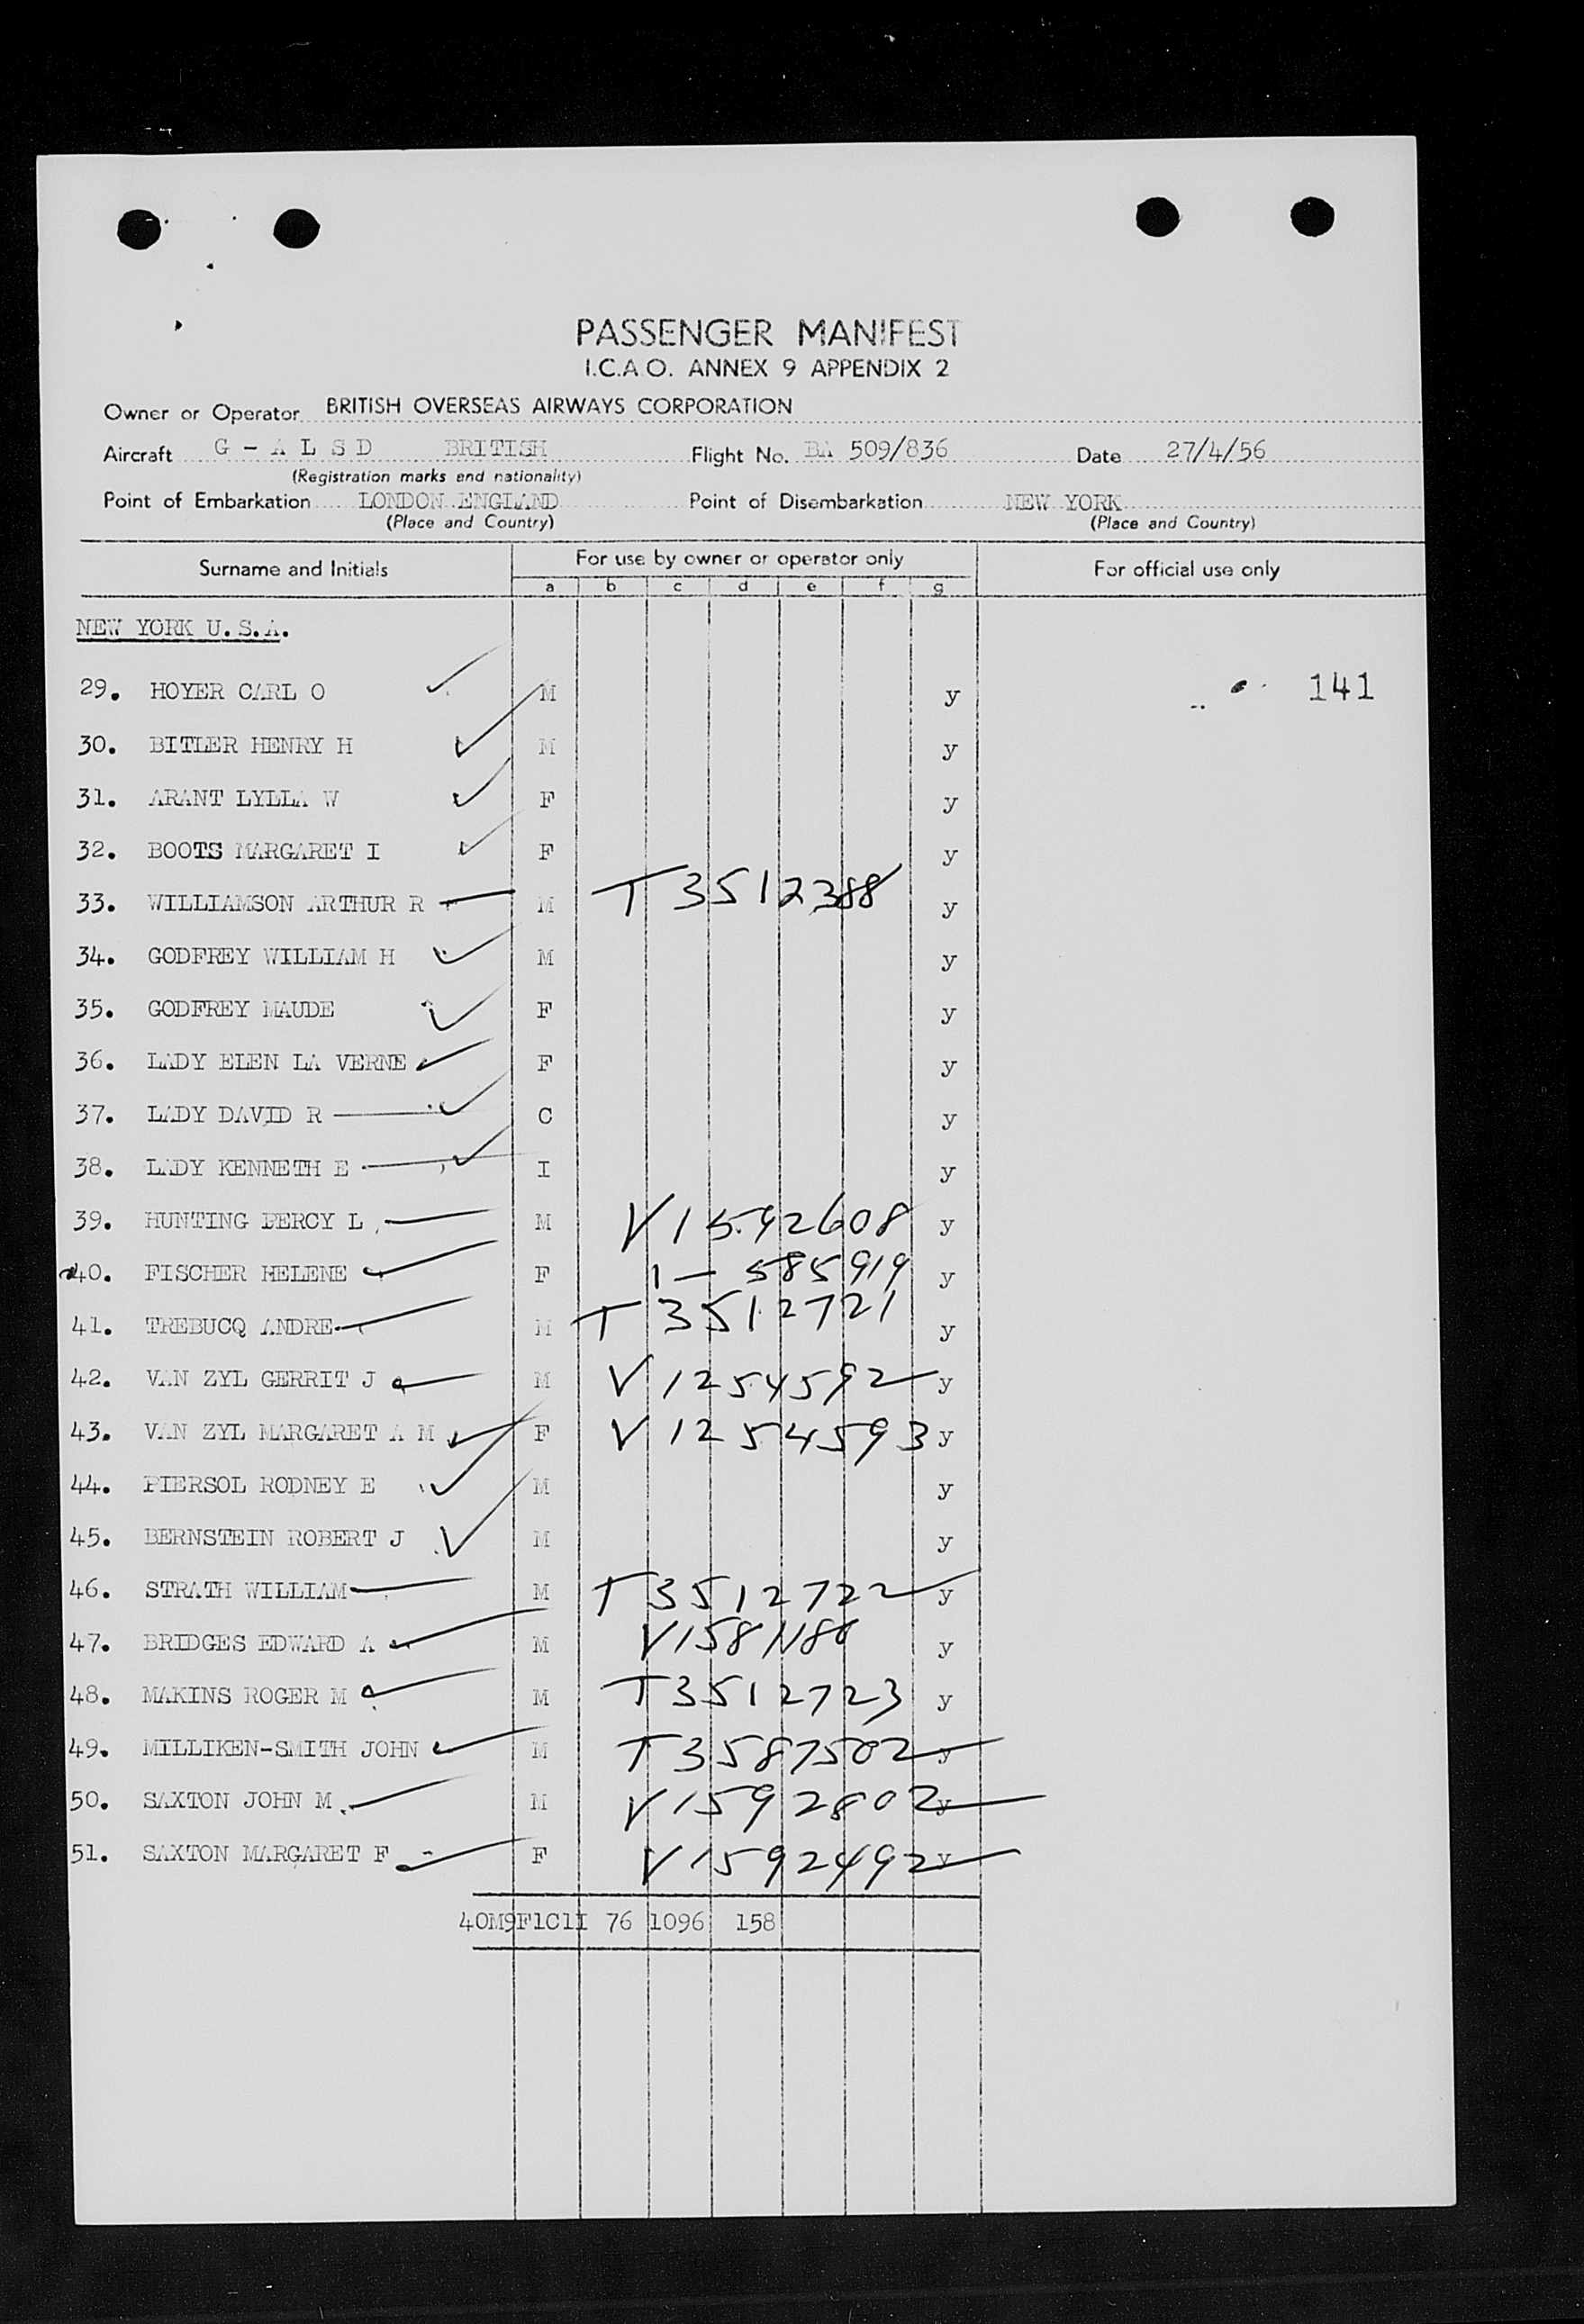 PASSENGER MANIFEST
I.C.A.O. ANNEX 9 APPENDIX 2
Owner or Operator BRITISH OVERSEAS AIRWAYS CORPORATION
Aircraft G - A L S D BRITISH Flight No. BA 509/836 Date 27/4/56
(Registration marks and nationality)
Point of Embarkation LONDON ENGLAND Point of Disembarkation NEW YORK
(Place and Country) (Place and Country)
Surname and Initials For use by owner or operator only For official use only
a b c d e f g
NEW YORK U.S.A.
29. HOYER CARL O M y 141
30. BITLER HENRY H M y
31. ARANT LYLLA W F y
32. BOOTS MARGARET I F y
33. WILLIAMSON ARTHUR R M T3512388 y
34. GODFREY WILLIAM H M y
35. GODFREY MAUDE F y
36. LADY ELEN LA VERNE F y
37. LADY DAVID R C y
38. LADY KENNETH E I y
39. HUNTING PERCY L M V1592608 y
40. FISCHER HELENE F 1-585919 y
41. TREBUCQ ANDRE M T3512721 y
42. VAN ZYL GERRIT J M V1254592 y
43. VAN ZYL MARGARET A M F V1254593 y
44. PIERSOL RODNEY E M y
45. BERNSTEIN ROBERT J M y
46. STRATH WILLIAM M T3512722 y
47. BRIDGES EDWARD A M y
48. MAKINS ROGER M M T3512723 y
49. MILLIKEN-SMITH JOHN M T3587502 y
50. SAXTON JOHN M M V1592802 y
51. SAXTON MARGARET F F V1592492 y
40M9F1C1I 76 1096 158